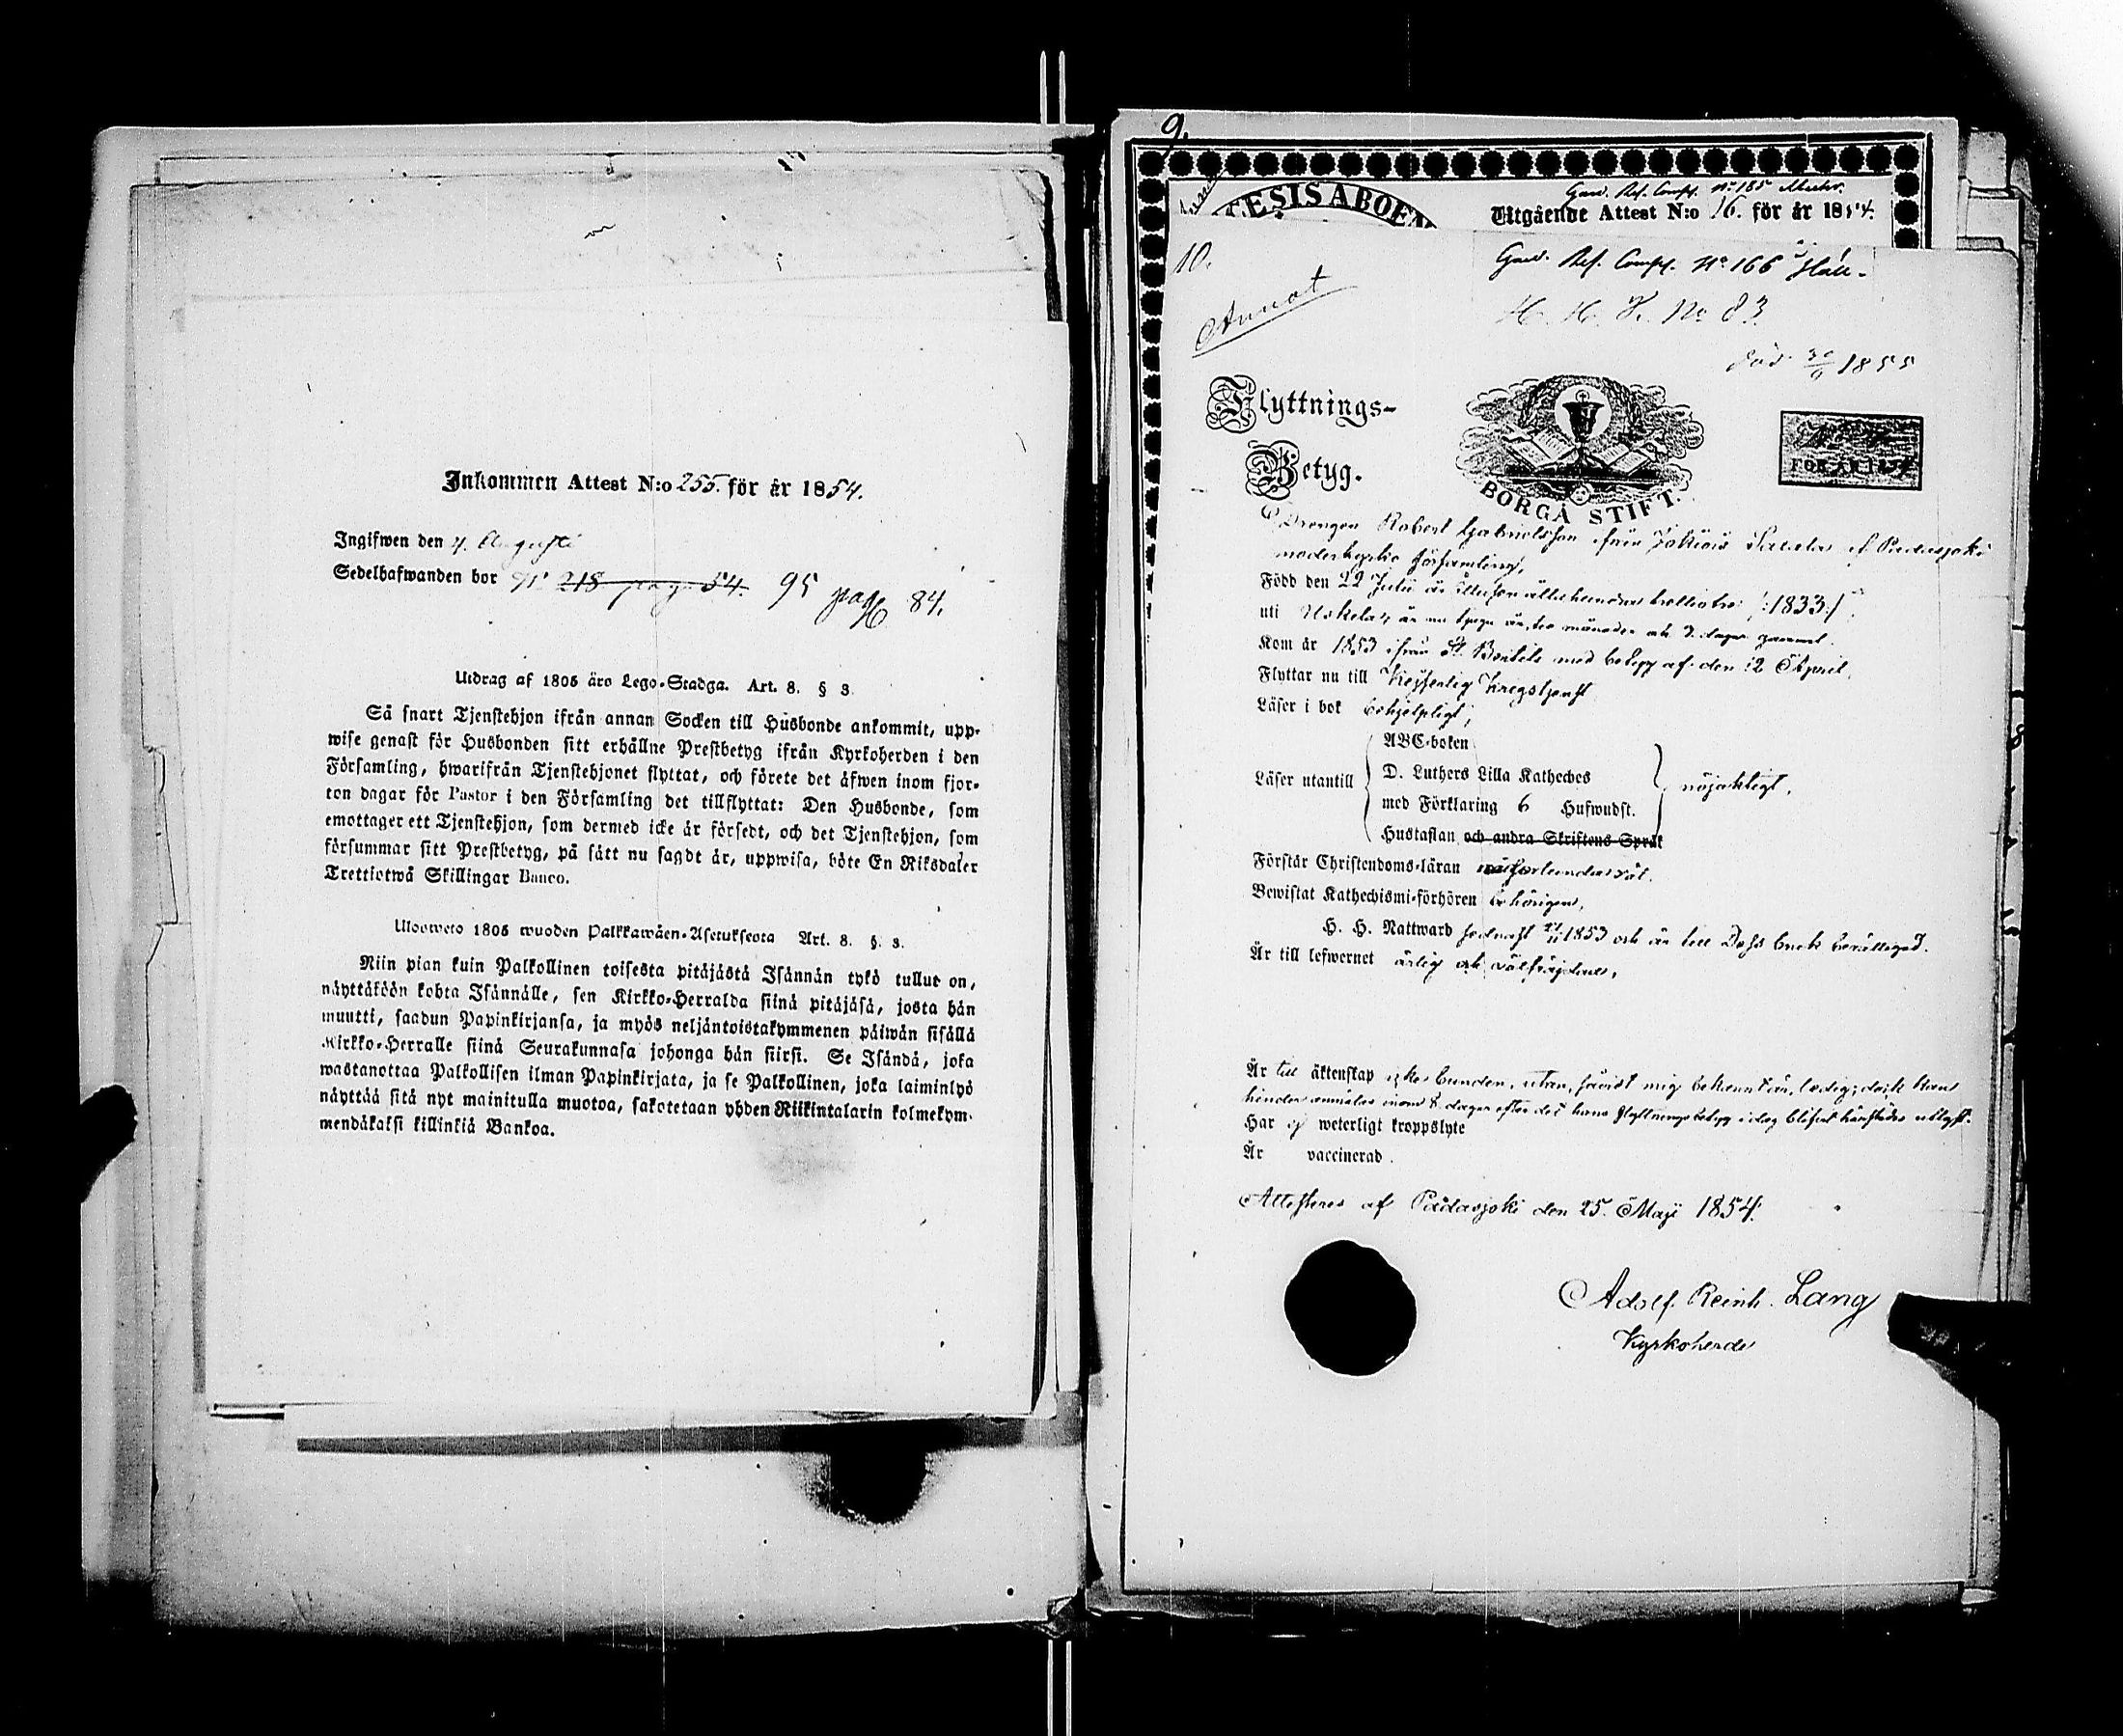 Inkommen Attest N:o 255. för år 1854.
Ingifwen den 4. Augusti
Sedelhafwanden bor N:o 218 pag. 54. 95 pag 84.
Utdrag af 1805 års Lego-Stadga. Art. 8. § 3.
Så snart Tjenstehjon ifrån annan Socken till Husbonde ankommit, upp-
wise genast för Husbonden sitt erhållne Prestbetyg ifrån Kyrkoherden i den
Församling, hwarifrån Tjenstehjonet flyttat, och förete det äfwen inom fjor-
ton dagar för Pastor i den Församling det tillflyttat: Den Husbonde, som
emottager ett Tjenstehjon, som dermed icke är försedt, och det Tjenstehjon, som
försummar sitt Prestbetyg, på sätt nu sagdt är, uppwisa, böte En Riksdaler
Trettiotwå Skillingar Banco.
Ulosweto 1805 wuoden Palkkawäen-Asetuksesta Art. 8. §. 3.
Niin pian kuin Palkollinen toisesta pitäjästä Isännän tykö tullut on,
näyttäköön kohta Isännälle, sen Kirkko-Herralda siinä pitäjäsä, josta hän
muutti, saadun Papinkirjansa, ja myös neljäntoistakymmenen päiwän sisällä
Kirkko-Herralle siinä Seurakunnasa johonga hän siirsi. Se Isändä, joka
wastanottaa Palkollisen ilman Papinkirjata, ja se Palkollinen, joka laiminlyö
näyttää sitä nyt mainitulla muotoa, sakotetaan yhden Riikintalarin kolmekym-
mendäkaksi killinkiä Bankoa.
9.
Gard. Res. Comp. N:o 185
Utgående Attest N:o 16. för år 1854.
10.
Gard. Res. Comp. N:o 166
Annot
H. H. K. No 83.
Död 30/9 1855
Flyttnings-
Betyg.
BORGÅ STIFT.
FÖR ÅR 1854
Drengen Robert Gabrielsson ifrån Jokiois af Padasjoki
moderkyrko församling,
Född den 22 Julii år adertonhundradetrettiotre /:1833:/
uti Uskela, är nu tjugu år, tio månader och 3 dagar gammal.
Kom år 1853 ifrån St Bertils med betyg af den 12 April.
Flyttar nu till Kejserlig Krigstjenst
Läser i bok behjelpligt,
Läser utantill
ABC-boken
D. Luthers Lilla Katheches
med Förklaring 6 Hufwudst.
Hustaflan och andra Skriftens Språk
nöjaktigt,
Förstår Christendoms-läran
Bewistat Kathechismi-förhören behörigen,
H. H. Nattward sednast 27/11 1853 och är till Dess bruk berättigad.
Är till lefwernet ärlig och välfrejdad,
Är till äktenskap icke bunden, utan, såvidt mig bekannt är, ledig; dock hans
hinder anmälas inom 8 dagar efter det hans flyttningsbetyg i dag blifvit härstädes utlyst.
Har ej weterligt kroppslyte
Är vaccinerad.
Attesteras af Padasjoki den 25. Maji 1854.
Adolf. Reinh. Lang
Kyrkoherde